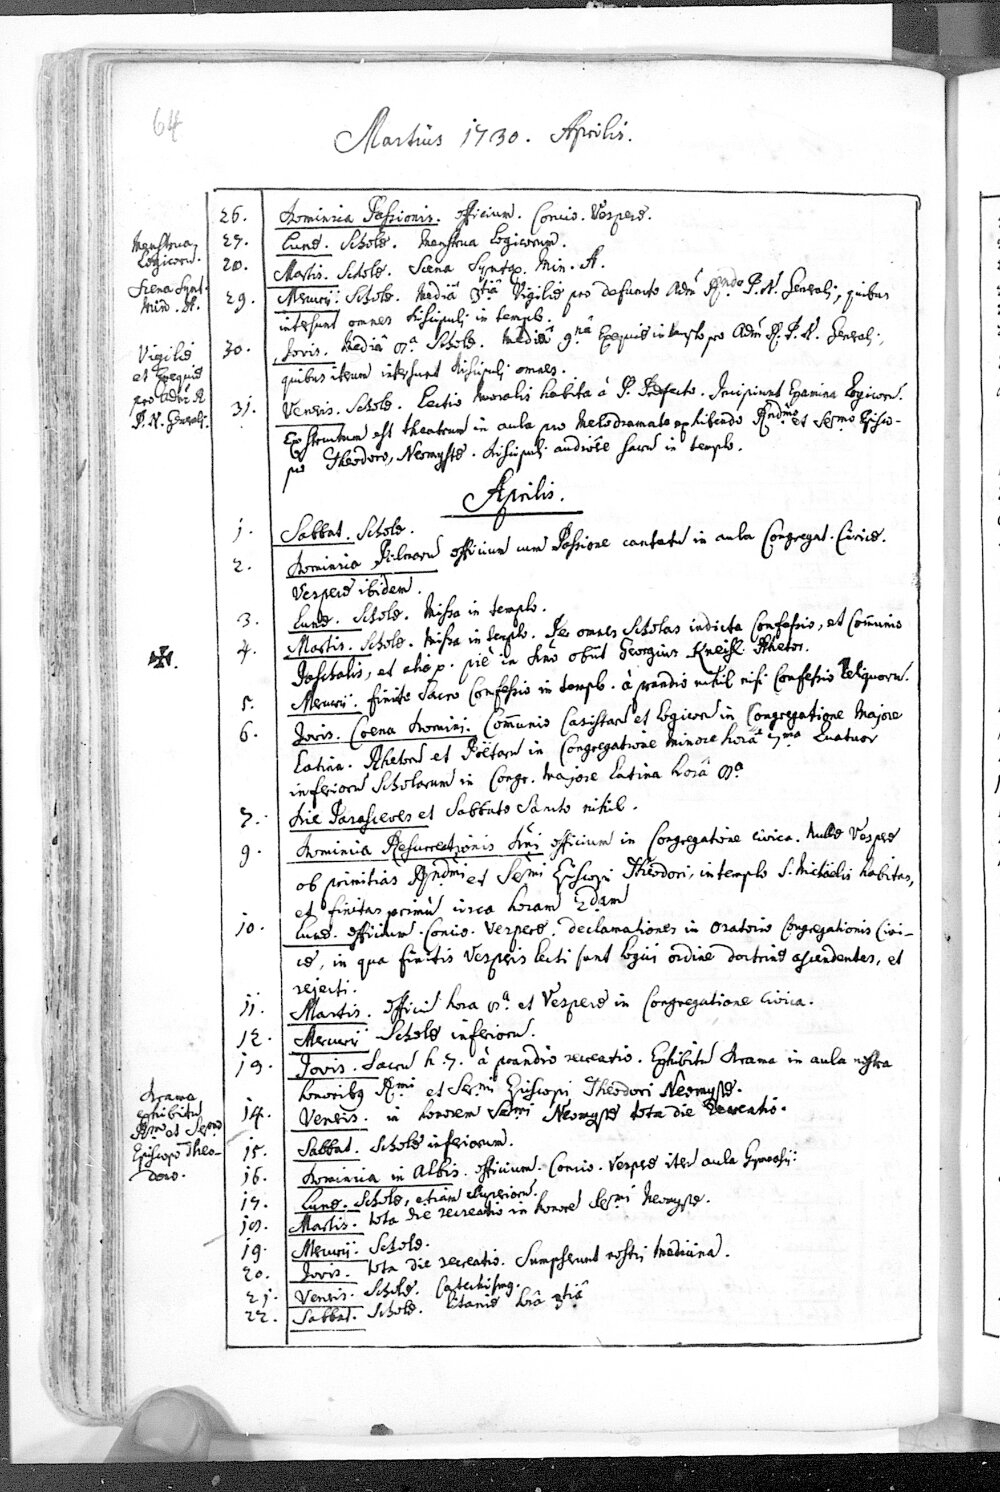 64
Martius 1730. Aprilis.
26. Dominica Passionis. officium. Concio. Vesperæ.
Menstrua Logicorum.
27. Lunæ. Scholæ. Menstrua Logicorum.
Scena Synt. Min. A.
28. Martis. Scholæ. Scena Syntax. Min. A.
29. Mercurij. Scholæ. Mediâ 3tiâ Vigiliæ pro defuncto Adm Rndo P. N. Generali, quibus
intersunt omnes discipuli in templo.
Vigiliæ et Exequiæ pro Adm R. P. N. Generali.
30. Jovis. Mediâ 8a Scholæ. Mediâ 9nâ Exequiæ in templo pro Adm R. P. N. Generali,
quibus iterum intersunt discipuli omnes.
31. Veneris. Scholæ. Lectio Moralis habita à P. Præfecto. Incipiunt Examina Logicorum.
Exstructum est theatrum in aula pro Melodramate exhibendo Rndmo et Sermo Episco-
po Theodoro, Neomystæ. discipuli audivêre sacrum in templo.
Aprilis.
1. Sabbat. Scholæ.
2. Dominica Palmarum officium cum Passione cantatum in aula Congregat. Civicæ.
Vesperæ ibidem.
3. Lunæ. Scholæ. Missa in templo.
4. Martis. Scholæ. Missa in templo. Per omnes Scholas indicta Confessio, et Communio
Paschalis, et alia p. piè in Dno obijt Georgius Kneisl Rhetor.
5. Mercurij. finito Sacro Confessio in templo. à prandio nihil nisi Confessio reliquorum.
6. Jovis. Coena Domini. Communio Casistarum et Logicorum in Congregatione Majore
Latina. Rhetorum et Poëtarum in Congregatione Minore horâ 7ma Quatuor
inferiorum Scholarum in Congr. Majore Latina horâ 8a
7. Die Parasceves et Sabbato Sancto nihil.
9. Dominica Resurrectionis Dni officium in Congregatione Civica. Nullæ Vesperæ
ob primitias Rndmi et Sermi Episcopi Theodori, in templo S. Michaëlis habitas,
et finitas primum circa horam 2dam
10. Lunæ. officium. Concio. Vesperæ. declamationes in oratorio Congregationis Civi-
cæ, in qua finitis Vesperis lecti sunt Logici ordine doctrinæ ascendentes, et
rejecti.
11. Martis. officium hora 8a et Vesperæ in Congregatione Civica.
12. Mercurij Scholæ inferiorum.
13. Jovis. Sacrum h. 7. à prandio recreatio. Exhibitum Drama in aula nostra
honoribus Rmi et Sermi Episcopi Theodori Neomystæ.
Drama exhibitum Rmo et Sermo Episcopo Theo-doro.
14. Veneris. in honorem Sermi Neomystæ tota die recreatio.
15. Sabbat. Scholæ inferiorum.
16. Dominica in Albis. officium. Concio. Vesperæ in aula Gymnasij.
17. Lunæ. Scholæ, etiam Superiorum.
18. Martis. tota die recreatio in honorem Sermi Neomystæ.
19. Mercurij. Scholæ.
20. Jovis. tota die recreatio. Sumpserunt nostri medicina.
21. Veneris. Scholæ. Catechismus.
22. Sabbat. Scholæ. Litaniæ horâ 3tiâ